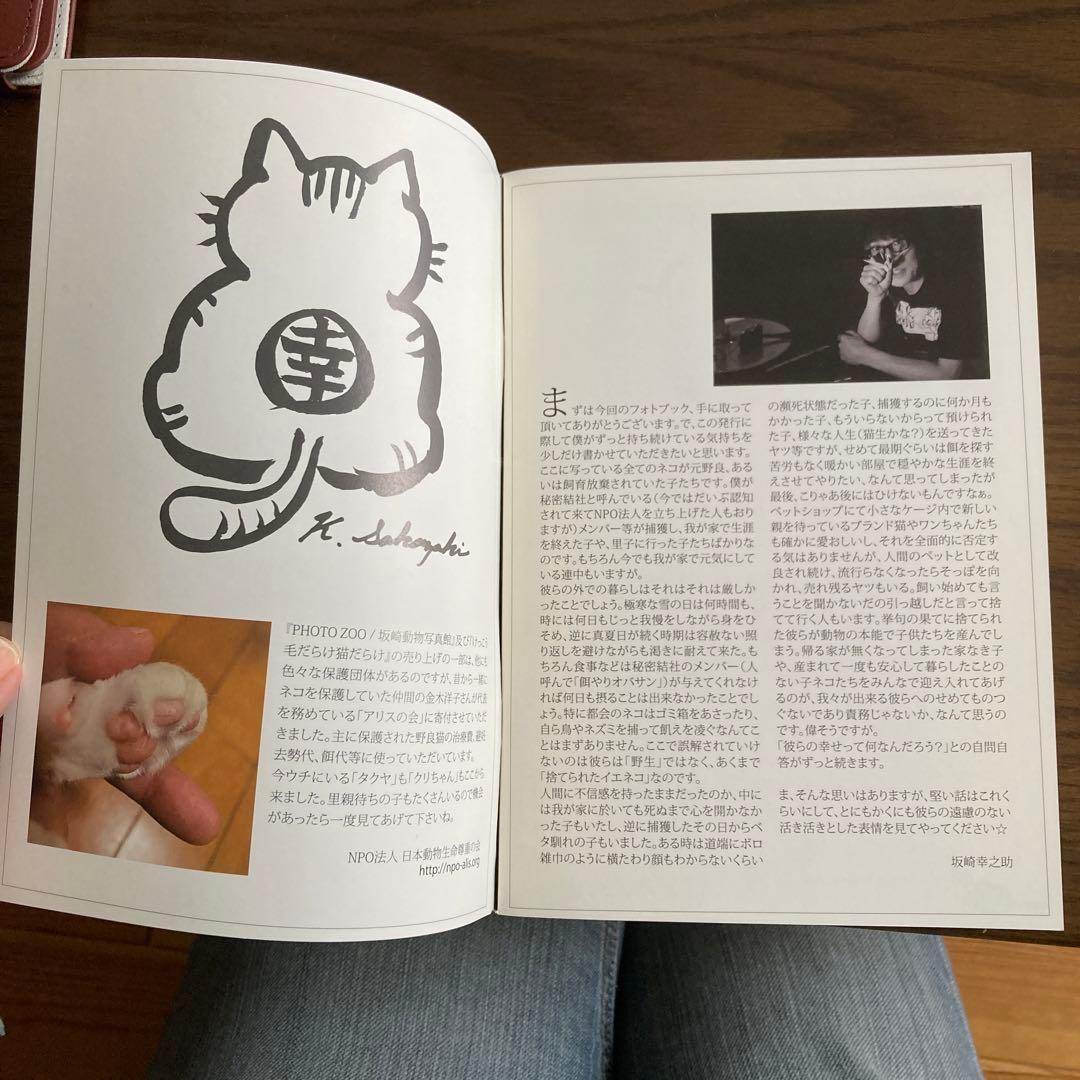 幸
K. Sakazaki
『PHOTO ZOO / 坂崎動物写真館』及び『けっこう
毛だらけ猫だらけ』の売り上げの一部は、他にも
色々な保護団体があるのですが、昔から一緒に
ネコを保護していた仲間の金木洋子さんが代表
を務めている「アリスの会」に寄付させていただ
きました。主に保護された野良猫の治療費、避妊
去勢代、餌代等に使っていただいています。
今ウチにいる「タクヤ」も「クリちゃん」もここから
来ました。里親待ちの子もたくさんいるので機会
があったら一度見てあげて下さいね。
NPO法人 日本動物生命尊重の会
http://npo-alis.org
まずは今回のフォトブック、手に取って
頂いてありがとうございます。で、この発行に
際して僕がずっと持ち続けている気持ちを
少しだけ書かせていただきたいと思います。
ここに写っている全てのネコが元野良、ある
いは飼育放棄されていた子たちです。僕が
秘密結社と呼んでいる(今ではだいぶ認知
されて来てNPO法人を立ち上げた人もおり
ますが)メンバー等が捕獲し、我が家で生涯
を終えた子や、里子に行った子たちばかりな
のです。もちろん今でも我が家で元気にして
いる連中もいますが。
彼らの外での暮らしはそれはそれは厳しか
ったことでしょう。極寒な雪の日は何時間も、
時には何日もじっと我慢をしながら身をひ
そめ、逆に真夏日が続く時期は容赦ない照
り返しを避けながらも渇きに耐えて来た。も
ちろん食事などは秘密結社のメンバー(人
呼んで「餌やりオバサン」)が与えてくれなけ
れば何日も摂ることは出来なかったことでし
ょう。特に都会のネコはゴミ箱をあさったり、
自ら鳥やネズミを捕って飢えを凌ぐなんてこ
とはまずありません。ここで誤解されていけ
ないのは彼らは「野生」ではなく、あくまで
「捨てられたイエネコ」なのです。
人間に不信感を持ったままだったのか、中に
は我が家に於いても死ぬまで心を開かなか
った子もいたし、逆に捕獲したその日からベ
タ馴れの子もいました。ある時は道端にボロ
雑巾のように横たわり顔もわからないくらい
の瀕死状態だった子、捕獲するのに何か月も
かかった子、もういらないからって預けられ
た子、様々な人生(猫生かな?)を送ってきた
ヤツ等ですが、せめて最期ぐらいは餌を探す
苦労もなく暖かい部屋で穏やかな生涯を終
えさせてやりたい、なんて思ってしまったが
最後、こりゃあ後にはひけないもんですなぁ。
ペットショップにて小さなケージ内で新しい
親を待っているブランド猫やワンちゃんたち
も確かに愛おしいし、それを全面的に否定す
る気はありませんが、人間のペットとして改
良され続け、流行らなくなったらそっぽを向
かれ、売れ残るヤツもいる。飼い始めても言
うことを聞かないだの引っ越しだと言って捨
てて行く人もいます。挙句の果てに捨てられ
た彼らが動物の本能で子供たちを産んでし
まう。帰る家が無くなってしまった家なき子
や、産まれて一度も安心して暮らしたことの
ない子ネコたちをみんなで迎え入れてあげ
るのが、我々が出来る彼らへのせめてものつ
ぐないであり責務じゃないか、なんて思うの
です。偉そうですが。
「彼らの幸せって何なんだろう?」との自問自
答がずっと続きます。
ま、そんな思いはありますが、堅い話はこれく
らいにして、とにもかくにも彼らの遠慮のない
活き活きとした表情を見てやってください☆
坂崎幸之助